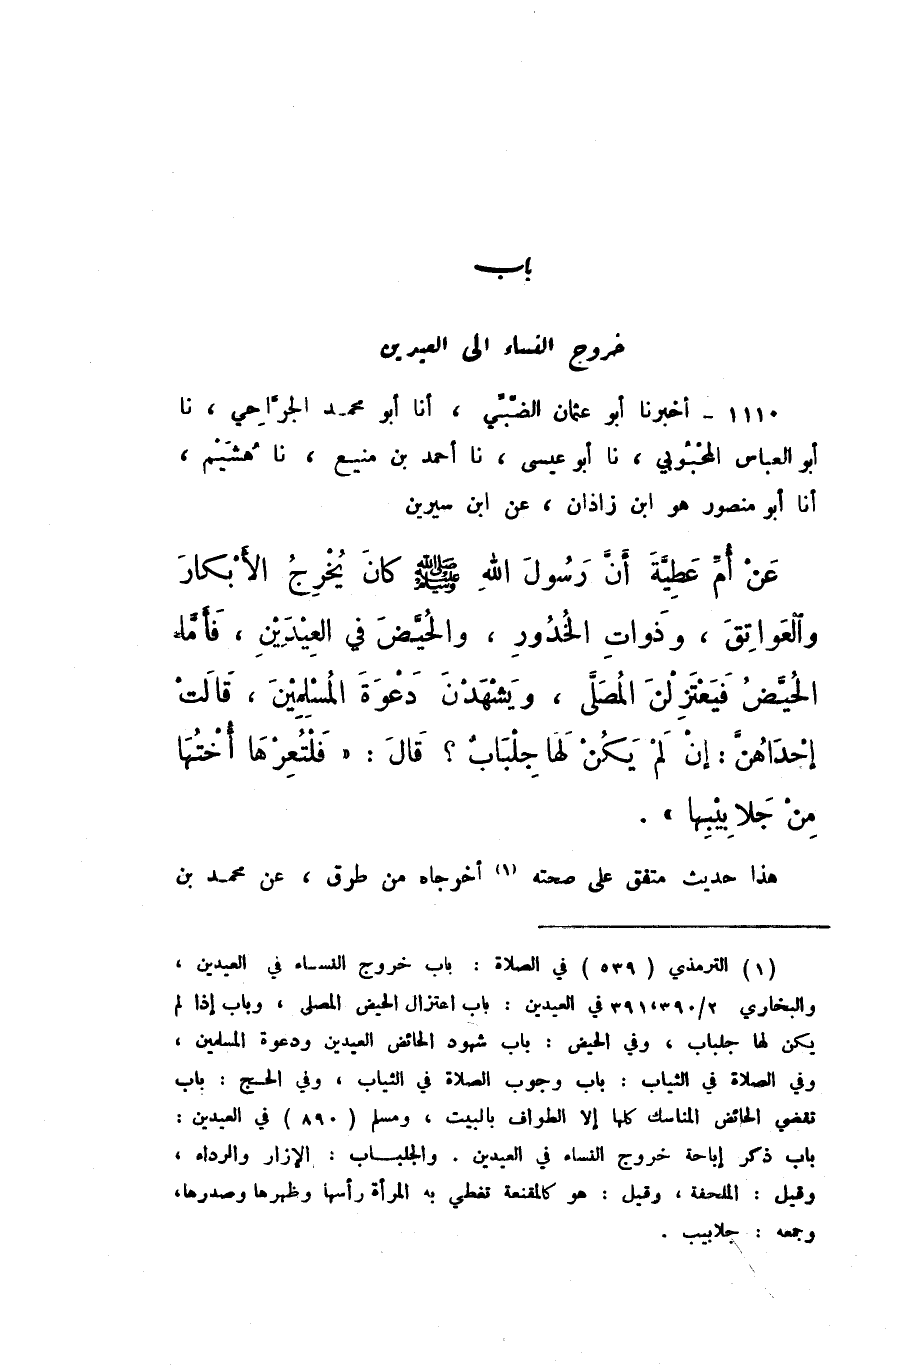 باب
خروج النساء الى العيدين
١١١٠ - أخبرنا أبو عثمان الضَّبِّي ، أنا أبو محمد الجرَّاحِي ، نا
أبو العباس المحْبُوبي ، نا أبو عيسى ، نا أحمد بن منيع ، نا هُشَيْم ،
أنا أبو منصور هو ابن زاذان ، عن ابن سيرين
عَنْ أُمِّ عَطِيَّةَ أَنَّ رَسُولَ اللهِ ﷺ كانَ يُخْرِجُ الأَبْكارَ
والْعَواتِقَ ، وذَواتِ الخُدُورِ ، والحُيَّضَ في العِيْدَيْنِ ، فَأَمَّا
الحُيَّضُ فَيَعْتَزِلْنَ المُصَلَّى ، ويَشْهَدْنَ دَعْوَةَ المُسْلِمِيْنَ ، قَالَتْ
إحْدَاهُنَّ : إنْ لَمْ يَكُنْ لَهَا جِلْبَابٌ ؟ قَالَ : « فَلْتُعِرْهَا أُخْتُهَا
مِنْ جَلابِيْبِها » .
هذا حديث متفق على صحته (١) أخرجاه من طرق ، عن محمد بن
(١) الترمذي ( ٥٣٩ ) في الصلاة : باب خروج النساء في العيدين ،
والبخاري ٣٩١،٣٩٠/٢ في العيدين : باب اعتزال الحيض المصلى ، وباب إذا لم
يكن لها جلباب ، وفي الحيض : باب شهود الحائض العيدين ودعوة المسلمين ،
وفي الصلاة في الثياب : باب وجوب الصلاة في الثياب ، وفي الحج : باب
تقضي الحائض المناسك كلها إلا الطواف بالبيت ، ومسلم ( ٨٩٠ ) في العيدين :
باب ذكر إباحة خروج النساء في العيدين . والجلباب : الإزار والرداء ،
وقيل : الملحفة ، وقيل : هو كالمقنعة تغطي به المرأة رأسها وظهرها وصدرها،
وجمعه : جلابيب .